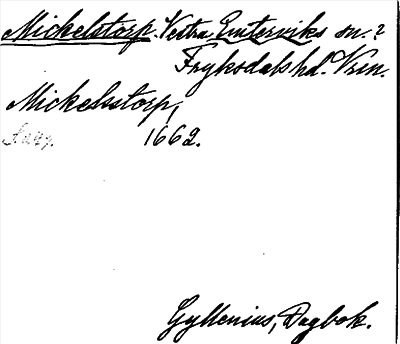 Mickelstorp. Vestra Emterviks sn. ?
Fryksdals hd. Vrm.
Mickelsstorp,
1662.
Gyllenius, Dagbok.